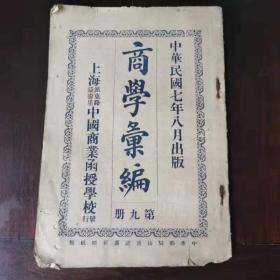 中華民國七年八月出版
商學彙編
第九冊
上海
中國商業函授學校發行